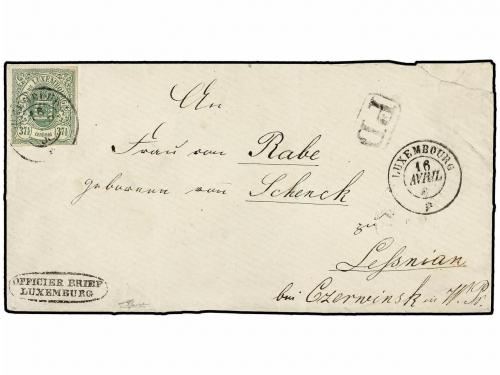 LUXEMBOURG
37½ CENTIMES 37½
PD
LUXEMBOURG
16
AVRIL
An
Frau von Rabe
geborenen von Schenck
zu
Lessnian
bei Czerwinsk in W. Pr.
OFFICIER BRIEF
LUXEMBURG